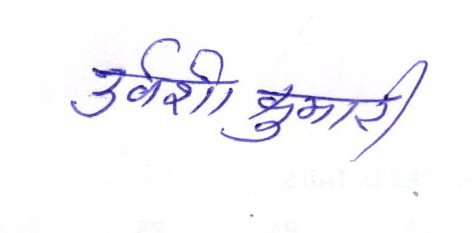 उर्वशी कुमारी